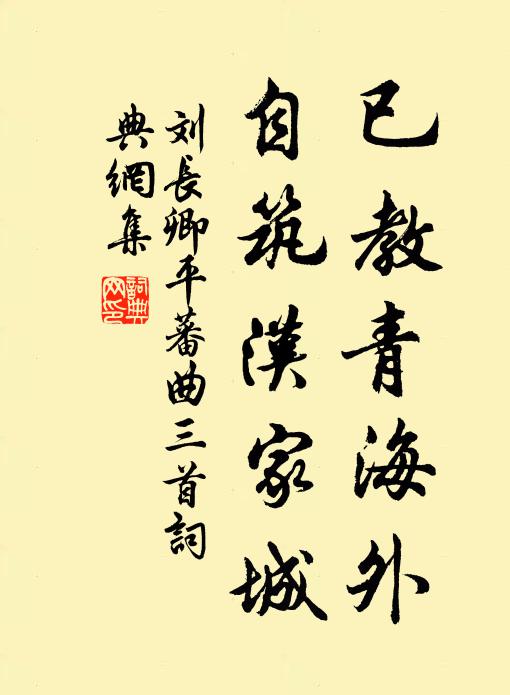 已教青海外
自筑漢家城
刘長卿平蕃曲三首詞
典網集
詞典
网印